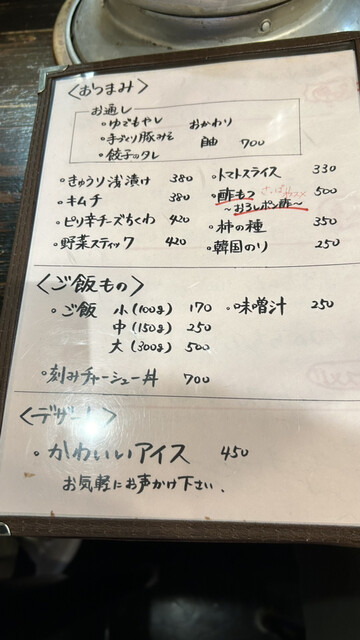 <おつまみ>
お通し
・ゆでもやし おかわり
・手づくり豚みそ 自由 700
・餃子のタレ
・きゅうり浅漬け 380
・キムチ 380
・ピリ辛チーズちくわ 420
・野菜スティック 420
・トマトスライス 330
・酢もつ さっぱりオススメ 500
〜おろしポン酢〜
・柿の種 350
・韓国のり 250
<ご飯もの>
・ご飯 小(100g) 170 ・味噌汁 250
中(150g) 250
大(300g) 500
・刻みチャーシュー丼 700
<デザート>
・かわいいアイス 450
お気軽にお声かけ下さい、